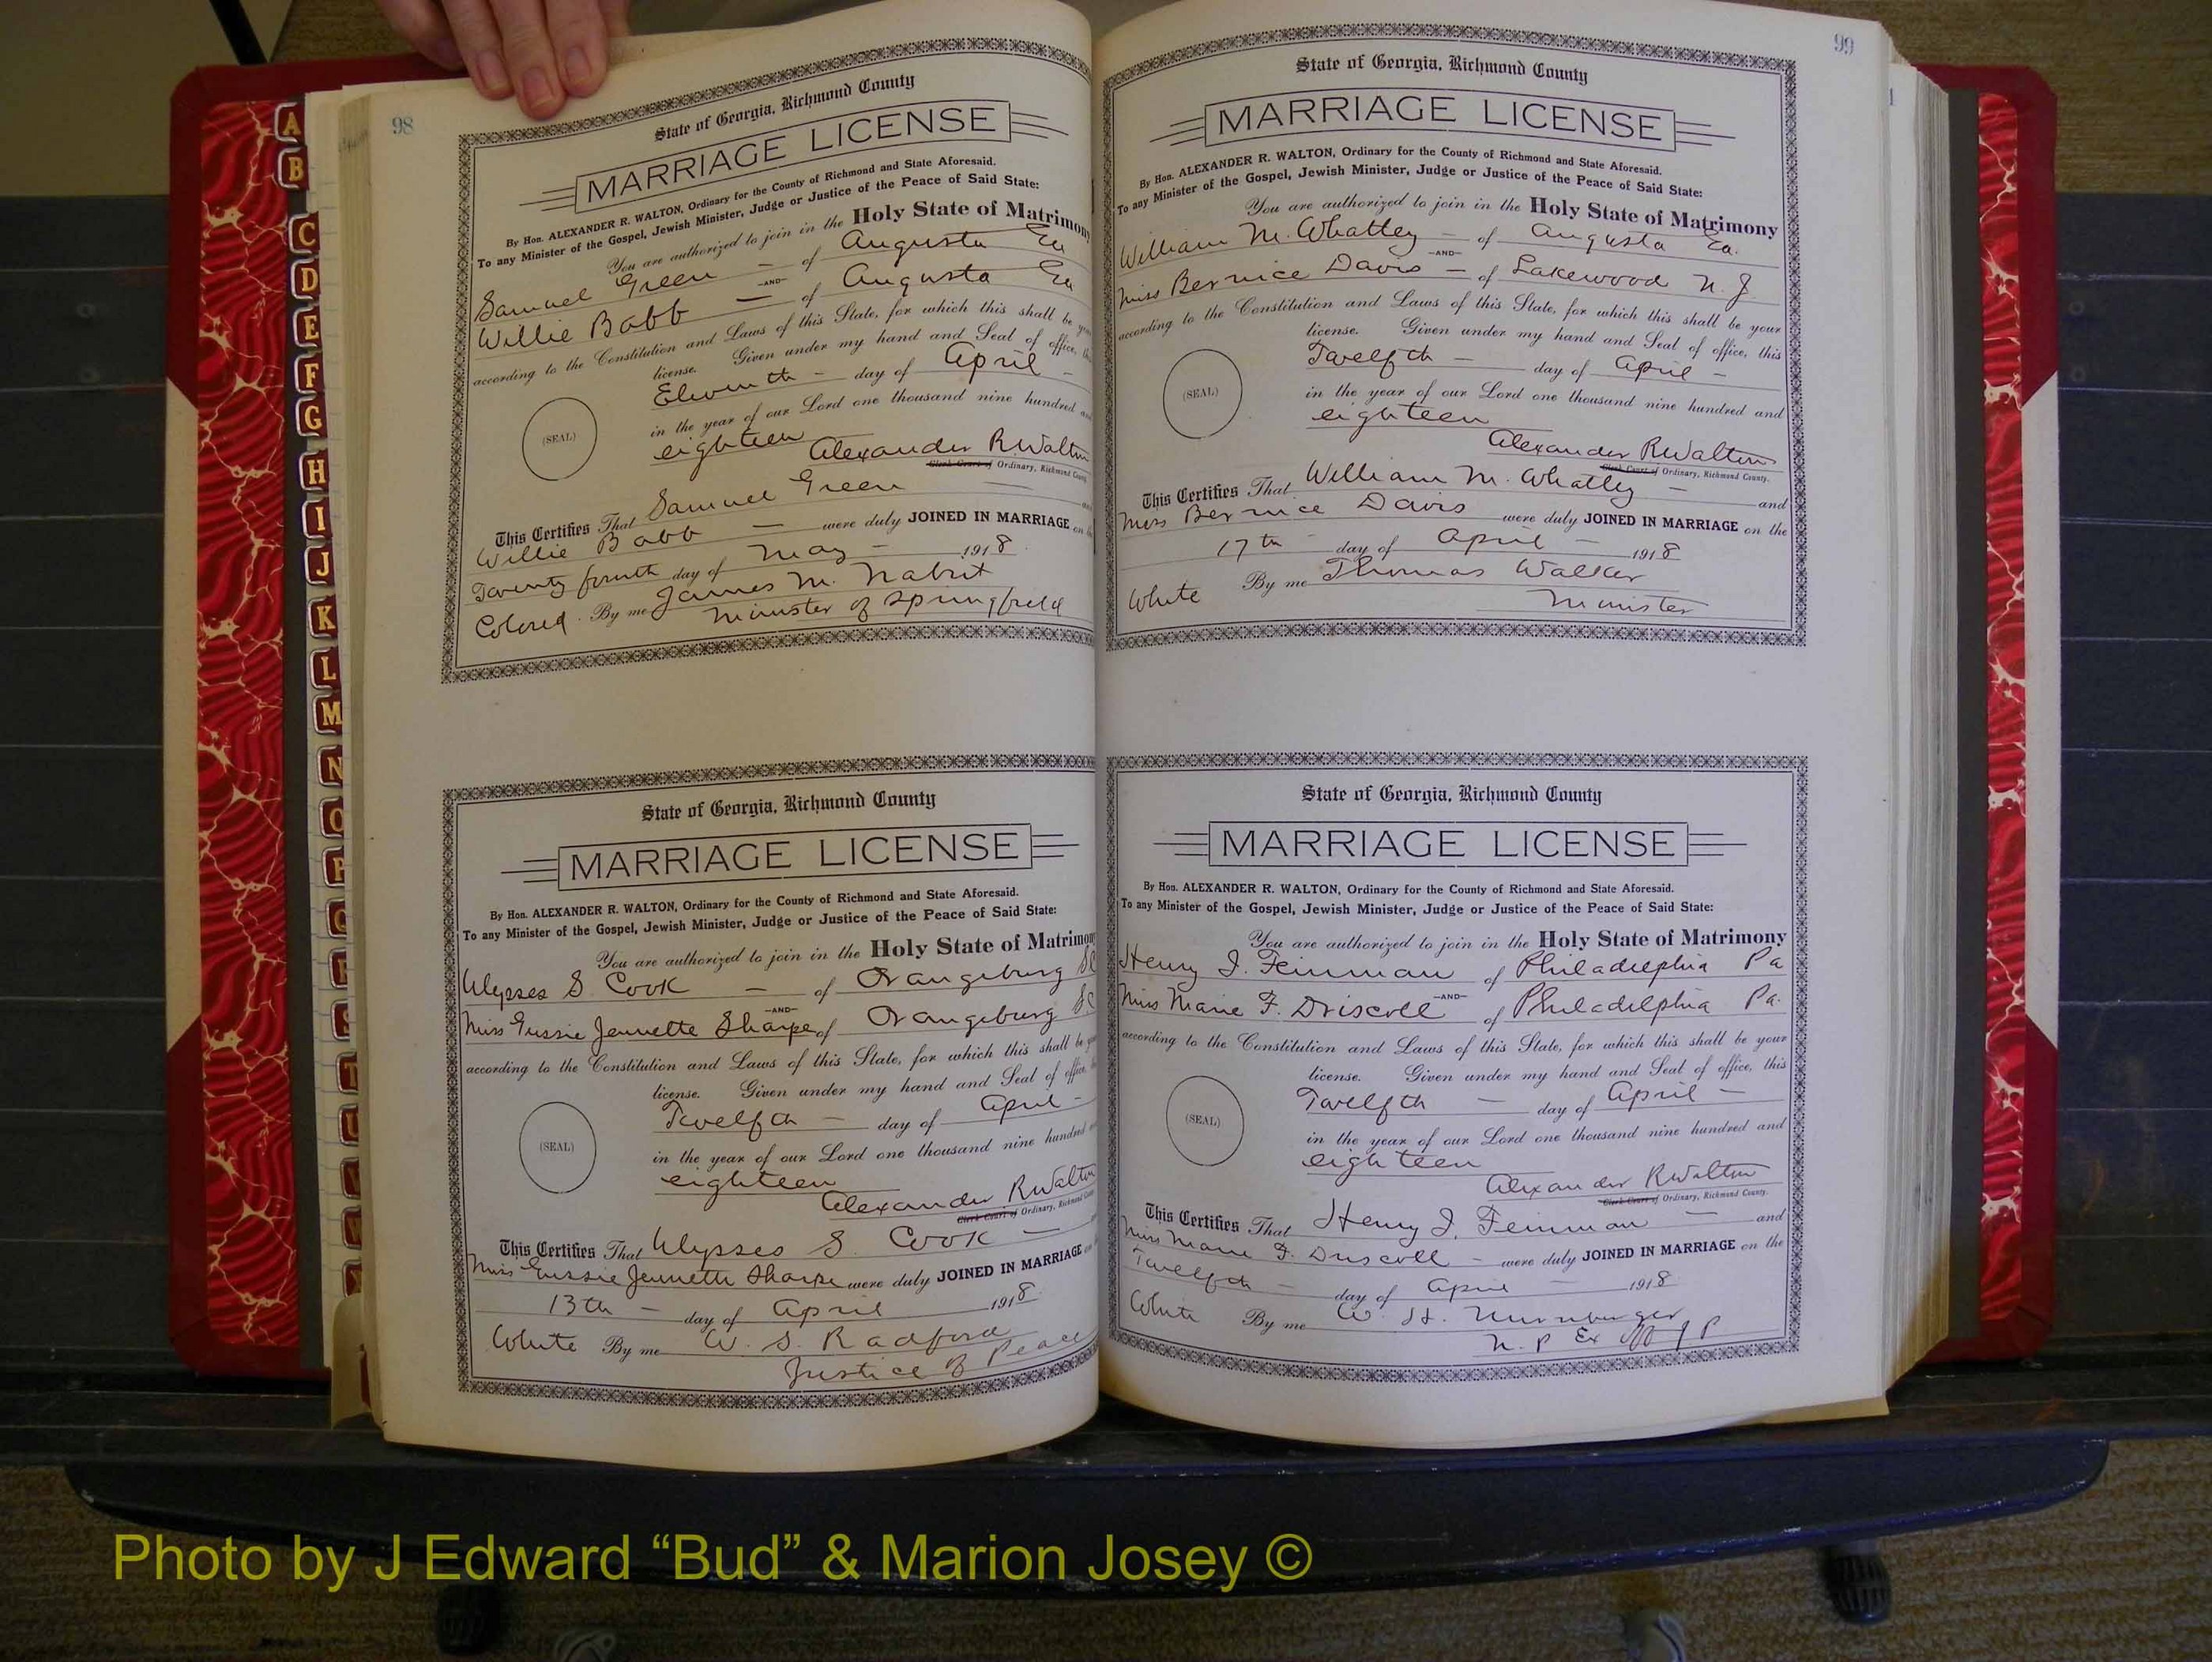 98
State of Georgia, Richmond County
MARRIAGE LICENSE
By Hon. ALEXANDER R. WALTON, Ordinary for the County of Richmond and State Aforesaid.
To any Minister of the Gospel, Jewish Minister, Judge or Justice of the Peace of Said State:
You are authorized to join in the Holy State of Matrimony
Samuel Green — of Augusta Ga
—AND—
Willie Babb — of Augusta Ga
according to the Constitution and Laws of this State, for which this shall be your
license. Given under my hand and Seal of office, this
Eleventh — day of April —
(SEAL)
in the year of our Lord one thousand nine hundred and
eighteen
Alexander R Walton
Clerk Court of Ordinary, Richmond County.
This Certifies That Samuel Green — and
Willie Babb — were duly JOINED IN MARRIAGE on the
Twenty fourth day of May — 1918
Colored. By me James M. Nabrit
Minister of Springfield
State of Georgia, Richmond County
MARRIAGE LICENSE
By Hon. ALEXANDER R. WALTON, Ordinary for the County of Richmond and State Aforesaid.
To any Minister of the Gospel, Jewish Minister, Judge or Justice of the Peace of Said State:
You are authorized to join in the Holy State of Matrimony
Ulysses S. Cook — of Orangeburg SC
—AND—
Miss Gussie Jennette Sharpe of Orangeburg SC
according to the Constitution and Laws of this State, for which this shall be your
license. Given under my hand and Seal of office, this
Twelfth — day of April —
(SEAL)
in the year of our Lord one thousand nine hundred and
eighteen
Alexander R Walton
Clerk Court of Ordinary, Richmond County.
This Certifies That Ulysses S. Cook —
Miss Gussie Jennette Sharpe were duly JOINED IN MARRIAGE on
13th — day of April 1918
White By me W. S. Radford
Justice of Peace
99
State of Georgia, Richmond County
MARRIAGE LICENSE
By Hon. ALEXANDER R. WALTON, Ordinary for the County of Richmond and State Aforesaid.
To any Minister of the Gospel, Jewish Minister, Judge or Justice of the Peace of Said State:
You are authorized to join in the Holy State of Matrimony
William M. Whatley — of Augusta Ga.
—AND—
Miss Bernice Davis — of Lakewood N. J.
according to the Constitution and Laws of this State, for which this shall be your
license. Given under my hand and Seal of office, this
Twelfth — day of April —
(SEAL)
in the year of our Lord one thousand nine hundred and
eighteen
Alexander R Walton
Clerk Court of Ordinary, Richmond County.
This Certifies That William M. Whatley — and
Miss Bernice Davis were duly JOINED IN MARRIAGE on the
17th — day of April — 1918
White By me Thomas Walker
Minister
State of Georgia, Richmond County
MARRIAGE LICENSE
By Hon. ALEXANDER R. WALTON, Ordinary for the County of Richmond and State Aforesaid.
To any Minister of the Gospel, Jewish Minister, Judge or Justice of the Peace of Said State:
You are authorized to join in the Holy State of Matrimony
Henry I. Feinman of Philadelphia Pa
—AND—
Miss Marie F. Driscoll of Philadelphia Pa.
according to the Constitution and Laws of this State, for which this shall be your
license. Given under my hand and Seal of office, this
Twelfth — day of April —
(SEAL)
in the year of our Lord one thousand nine hundred and
eighteen
Alexander R Walton
Clerk Court of Ordinary, Richmond County.
This Certifies That Henry I. Feinman — and
Miss Marie F. Driscoll — were duly JOINED IN MARRIAGE on the
Twelfth — day of April — 1918
White By me W. H. Nurnberger
N. P Ex Off J P
A
B
C
D
E
F
G
H
I
J
K
L
M
N
O
P
Q
R
S
T
U
Photo by J Edward “Bud” & Marion Josey ©